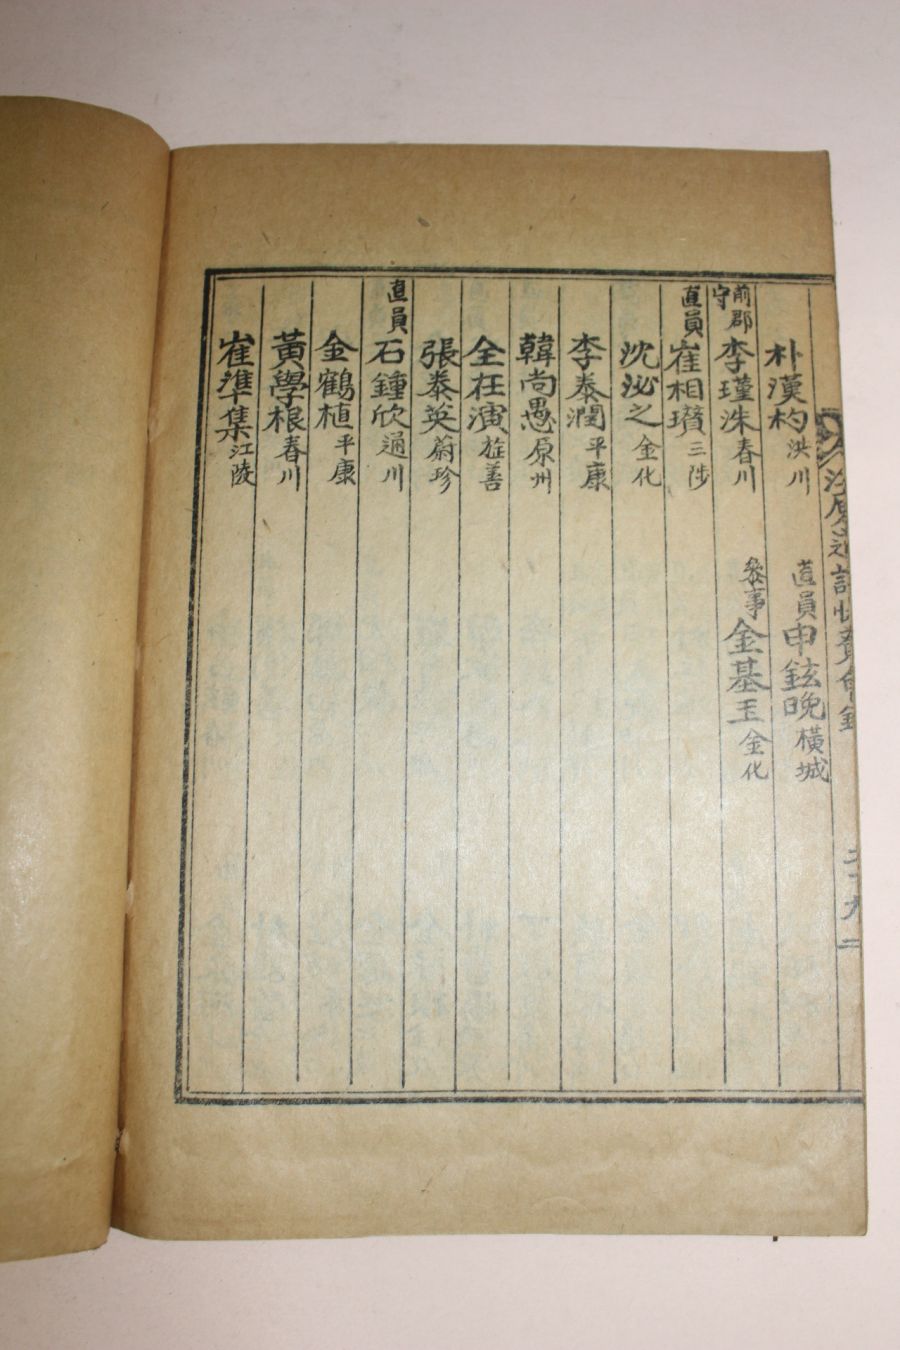 朴漢杓 洪川 直員 申鉉晩 橫城
前郡守 李瑾洙 春川 叅事 金基玉 金化
直員 崔相瓚 三陟
沈泌之 金化
李泰潤 平康
韓尚愚 原州
全在演 旌善
張泰英 蔚珍
直員 石鍾欣 通川
金鶴植 平康
黃學根 春川
崔準集 江陵